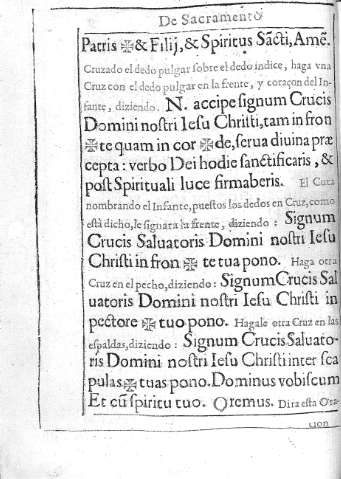 De Sacramento
Patris ✠ & Filij, & Spiritus Sãcti, Amẽ.
Cruzado el dedo pulgar sobre el dedo indice, haga vna
Cruz con el dedo pulgar en la frente, y coraçon del In-
fante, diziendo. N. accipe signum Crucis
Domini nostri Iesu Christi, tam in fron
✠ te quam in cor ✠ de, serua diuina præ
cepta: verbo Dei hodie sanctificaris, &
post Spirituali luce firmaberis. El Cura
nombrando el Infante, puestos los dedos en Cruz, como
està dicho, le signara la frente, diziendo: Signum
Crucis Saluatoris Domini nostri Iesu
Christi in fron ✠ te tua pono. Haga otra
Cruz en el pecho, diziendo: Signum Crucis Sal
uatoris Domini nostri Iesu Christi in
pectore ✠ tuo pono. Hagale otra Cruz en las
espaldas, diziendo: Signum Crucis Saluato-
ris Domini nostri Iesu Christi inter sca
pulas ✠ tuas pono. Dominus vobiscum
Et cũ spiritu tuo. Oremus. Dira esta Ora-